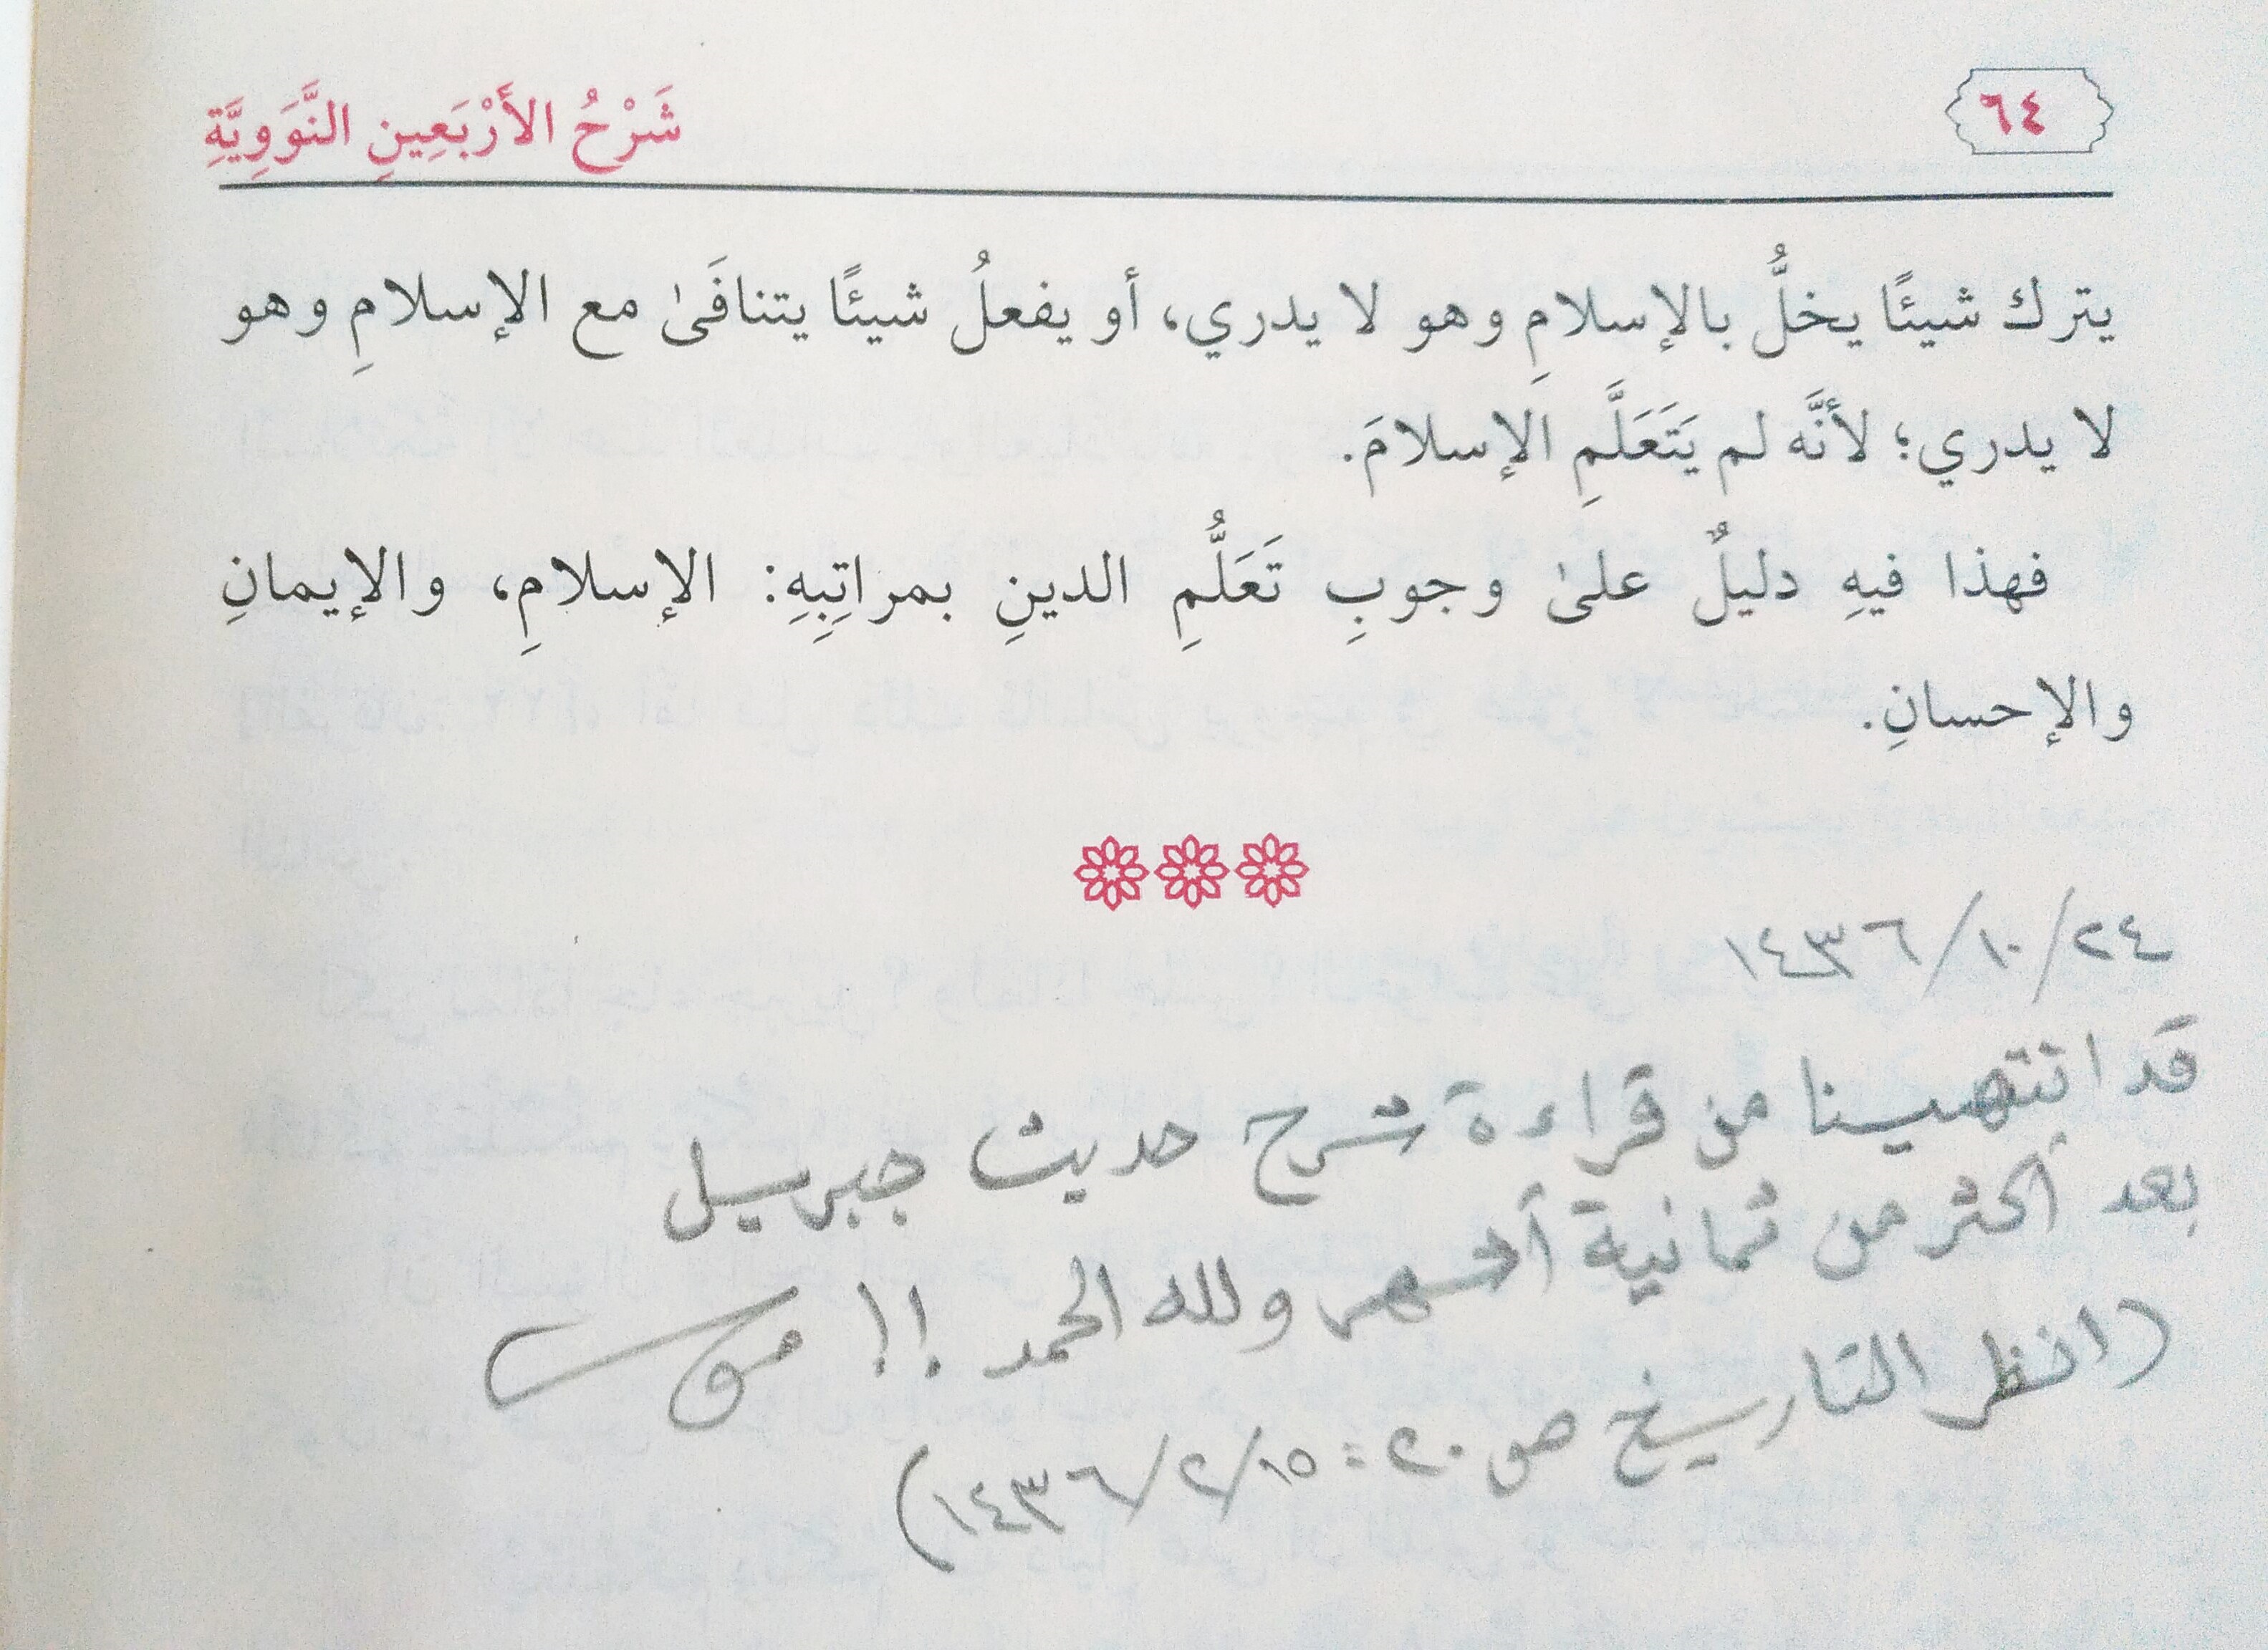 ٦٤
شَرْحُ الأَرْبَعِينِ النَّوَوِيَّةِ
يترك شيئًا يخلُّ بالإسلامِ وهو لا يدري، أو يفعلُ شيئًا يتنافَىٰ مع الإسلامِ وهو
لا يدري؛ لأنَّه لم يَتَعَلَّمِ الإسلامَ.
فهذا فيهِ دليلٌ علىٰ وجوبِ تَعَلُّمِ الدينِ بمراتِبِهِ: الإسلامِ، والإيمانِ
والإحسانِ.
٢٤/١٠/١٤٣٦
قد انتهينا من قراءة شرح حديث جبريل
بعد أكثر من ثمانية أشهر ولله الحمد !!
(انظر التاريخ ص ٢٠: ١٥/٢/١٤٣٦)